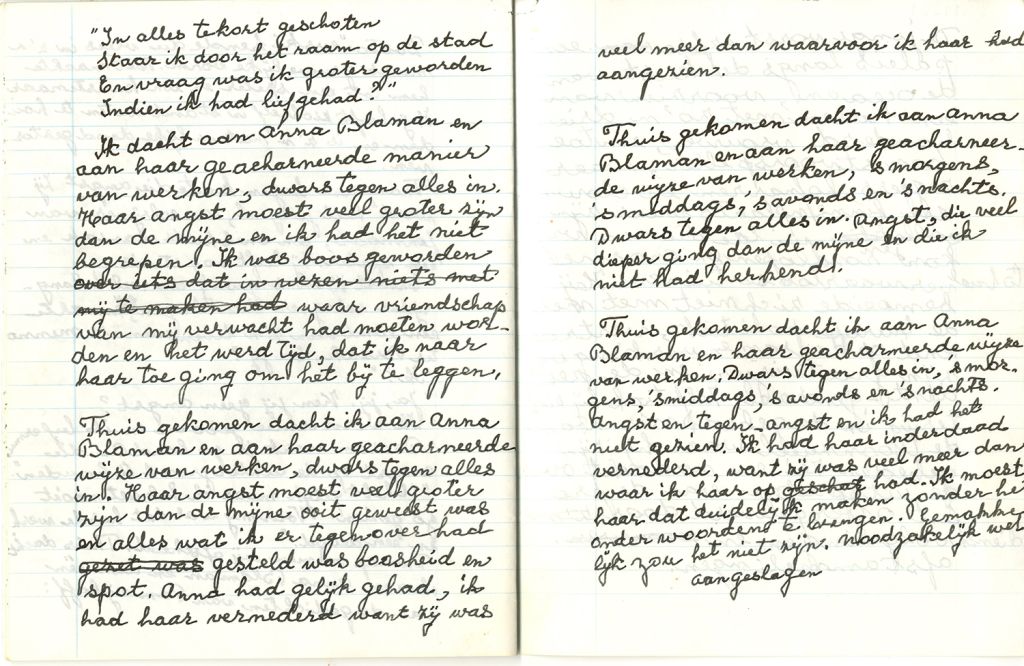 "In alles tekort geschoten
Staar ik door het raam op de stad
En vraag was ik groter geworden
Indien ik had liefgehad?"
Ik dacht aan Anna Blaman en
aan haar geacharneerde manier
van werken, dwars tegen alles in.
Haar angst moest veel groter zijn
dan de mijne en ik had het niet
begrepen. Ik was boos geworden
over iets dat in wezen niets met
mij te maken had waar vriendschap
van mij verwacht had moeten wor-
den en het werd tijd, dat ik naar
haar toe ging om het bij te leggen.
Thuis gekomen dacht ik aan Anna
Blaman en aan haar geacharneerde
wijze van werken, dwars tegen alles
in. Haar angst moest veel groter
zijn dan de mijne ooit geweest was
en alles wat ik er tegenover had
gezet was gesteld was boosheid en
spot. Anna had gelijk gehad, ik
had haar vernederd want zij was
veel meer dan waarvoor ik haar had
aangezien.
Thuis gekomen dacht ik aan Anna
Blaman en aan haar geacharneer-
de wijze van werken, 's morgens,
's middags, 's avonds en 's nachts.
Dwars tegen alles in. Angst, die veel
dieper ging dan de mijne en die ik
niet had herkend.
Thuis gekomen dacht ik aan Anna
Blaman en haar geacharneerde wijze
van werken. Dwars tegen alles in, 's mor-
gens, 's middags, 's avonds en 's nachts.
Angst en tegen-angst en ik had het
niet gezien. Ik had haar inderdaad
vernederd, want zij was veel meer dan
waar ik haar op geschat had. Ik moest
haar dat duidelijk maken zonder het
onder woorden te brengen. Gemakke-
lijk zou het niet zijn. Noodzakelijk wel
aangeslagen